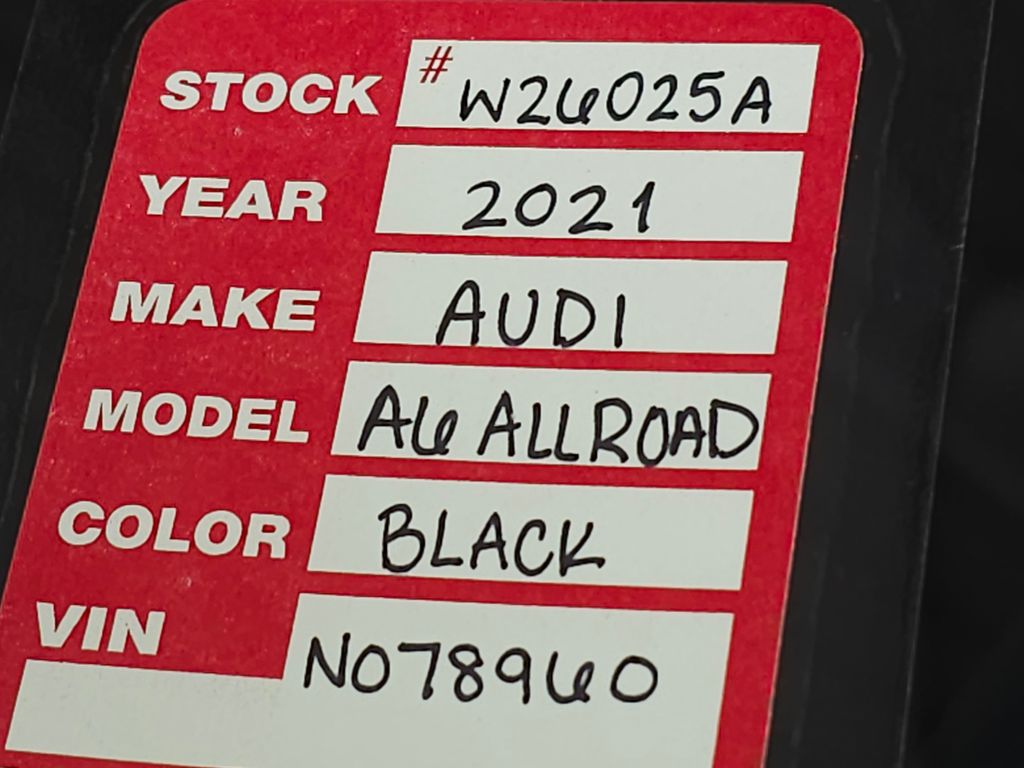 STOCK # W26025A
YEAR 2021
MAKE AUDI
MODEL A6 ALLROAD
COLOR BLACK
VIN N078960